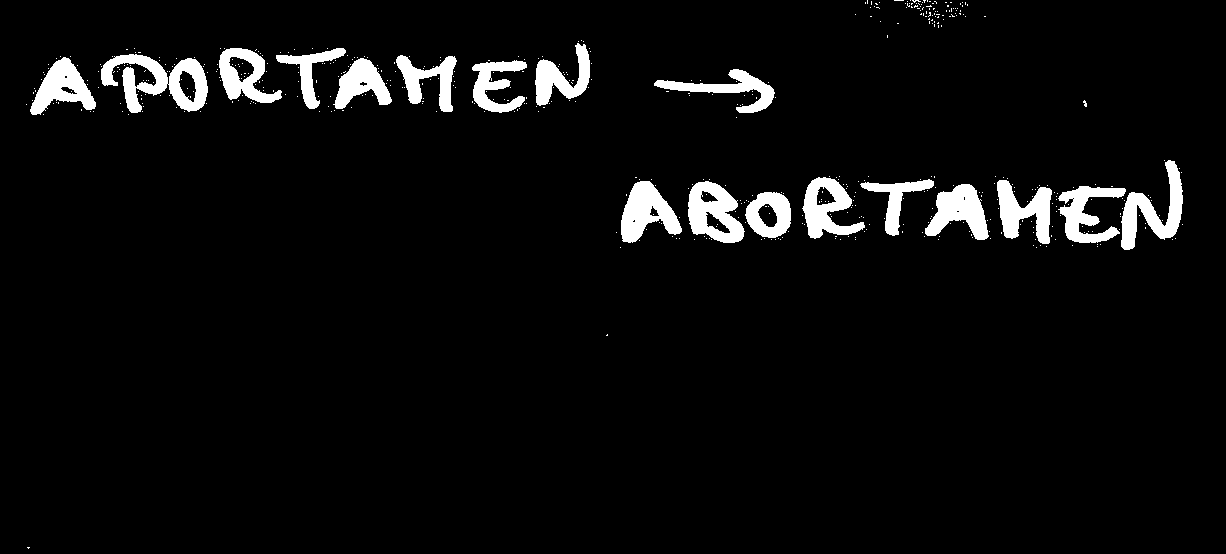 APORTAMEN →
ABORTAMEN